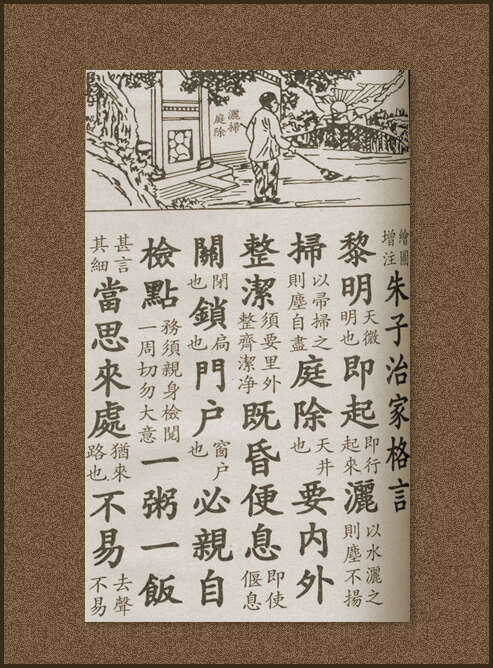 灑掃
庭除
繪圖增注朱子治家格言
黎明天微明也即起即行起來灑以水灑之則塵不揚
掃以帚掃之則塵自盡庭除天井也要內外
整潔須要里外整齊潔净既昏便息即使偃息
關閉也鎖扃也門户窗户也必親自
檢點務須親身檢閱一周切勿大意一粥一飯
甚言其細當思來處猶來路也不易去聲不易